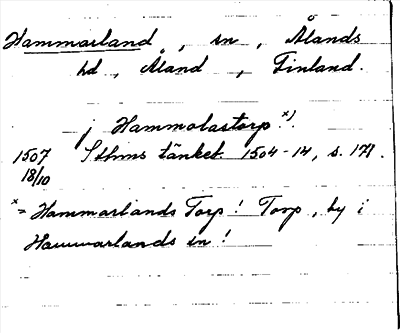 Hammarland, sn, Ålands
hd, Åland, Finland.
j Hammolastorp x).
1507 Sthms tänkeb. 1504-14, s. 171.
18/10
x = Hammarlands Torp! Torp, by i
Hammarlands sn!